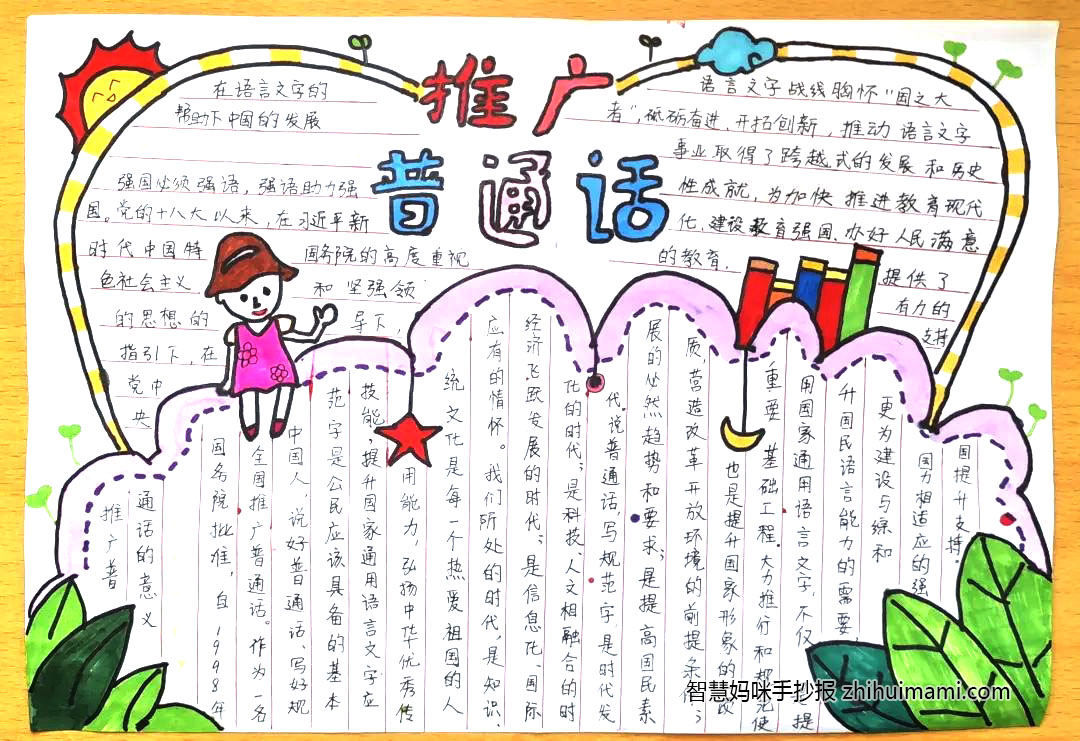 推广
普通话
在语言文字的
帮助下中国的发展
强国必须强语，强语助力强
国。党的十八大以来，在习近平新
时代中国特
色社会主义
的思想的
指引下，在
党中
央
国务院的高度重视
和坚强领
导下，
语言文字战线胸怀“国之大
者”，砥砺奋进、开拓创新，推动语言文字
事业取得了跨越式的发展和历史
性成就，为加快推进教育现代
化、建设教育强国、办好人民满意
的教育.
提供了
有力的
支持
推广普
通话的意义
国务院批准，自1998年
全国推广普通话。作为一名
中国人，说好普通话、写好规
范字是公民应该具备的基本
技能，提升国家通用语言文字应
用能力，弘扬中华优秀传
统文化是每一个热爱祖国的人
应有的情怀。我们所处的时代，是知识、
经济飞跃发展的时代；是信息化、国际
化的时代；是科技、人文相融合的时
代。说普通话，写规范字，是时代发
展的必然趋势和要求；是提高国民素
质营造改革开放环境的前提条件；
也是提升国家形象的
重要基础工程。大力推行和规范使
用国家通用语言文字，不仅是提
升国民语言能力的需要，
更为建设与综和
国力相适应的强
国提升支持。
智慧妈咪手抄报 zhihuimami.com